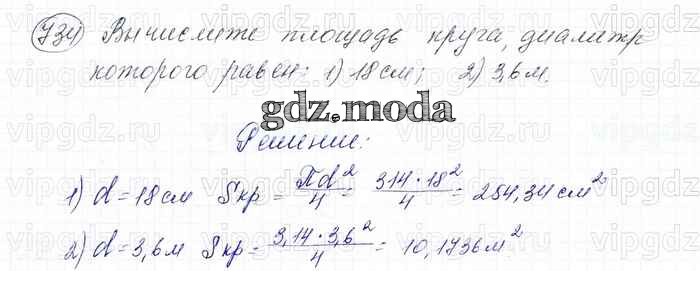 734) Вычислите площадь круга, диаметр
которого равен: 1) 18 см; 2) 3,6 м.
gdz.moda
Решение:
1) d = 18 см Sкр = πd²/4 = 314·18²/4 = 254,34 см²
2) d = 3,6 м Sкр = 3,14·3,6²/4 = 10,1736 м²